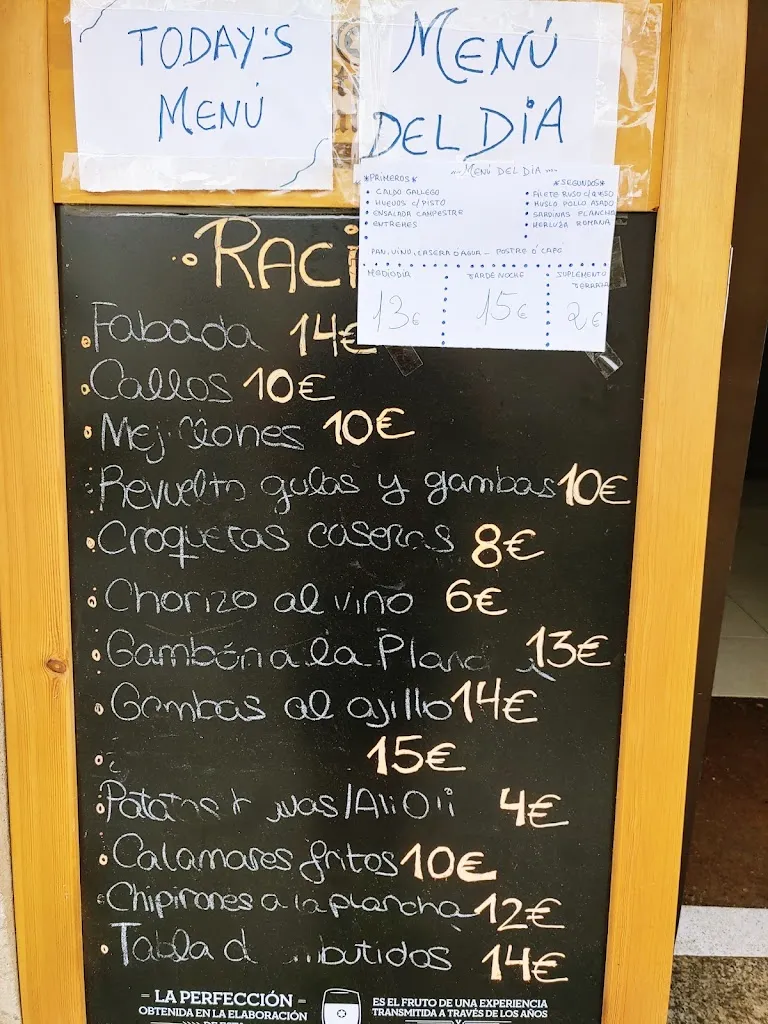 TODAY'S
MENÚ
MENÚ
DEL DIA
~ MENÚ DEL DIA ~
*PRIMEROS*
• CALDO GALLEGO
• HUEVOS C/PISTO
• ENSALADA CAMPESTRE
• ENTREMES
*SEGUNDOS*
• FILETE RUSO C/QUESO
• MUSLO POLLO ASADO
• SARDINAS PLANCHA
• MERLUZA ROMANA
PAN, VINO, CASERA O AGUA - POSTRE O' CAFÉ
MEDIODIA
13€
TARDE NOCHE
15€
SUPLEMENTO
TERRAZA
2€
RACI
Fabada 14€
Callos 10€
Mejillones 10€
Revuelto gulas y gambas 10€
Croquetas caseras 8€
Chorizo al vino 6€
Gambón a la Planc 13€
Gambas al ajillo 14€
15€
Patatas /AliOli 4€
Calamares fritos 10€
Chipirones a la plancha 12€
Tabla d butidos 14€
- LA PERFECCIÓN -
OBTENIDA EN LA ELABORACIÓN
DE ESTA
ES EL FRUTO DE UNA EXPERIENCIA
TRANSMITIDA A TRAVÉS DE LOS AÑOS
Y